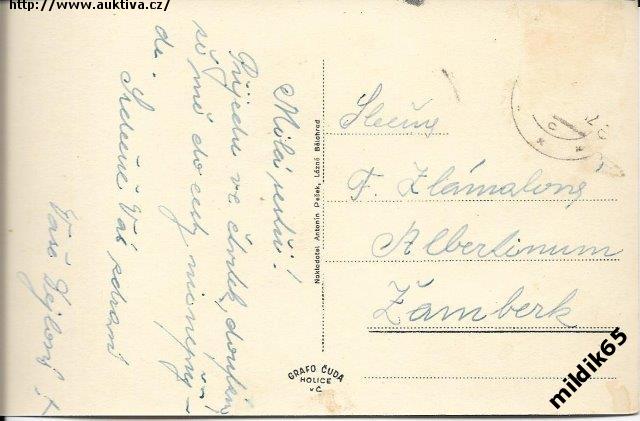 http://www.auktiva.cz/
Milá sestři!
Přijedu ve čtvrtek, doufám
že mě do cesty nic nepřij-
de.
Srdečně Vás zdraví
Vaše
Nakladatel Antonín Pešek, Lázně Bělohrad
GRAFO ČUDA
HOLICE
v Č.
Slečna
F. Zlámalova
Albertinum
Žamberk
mildik65